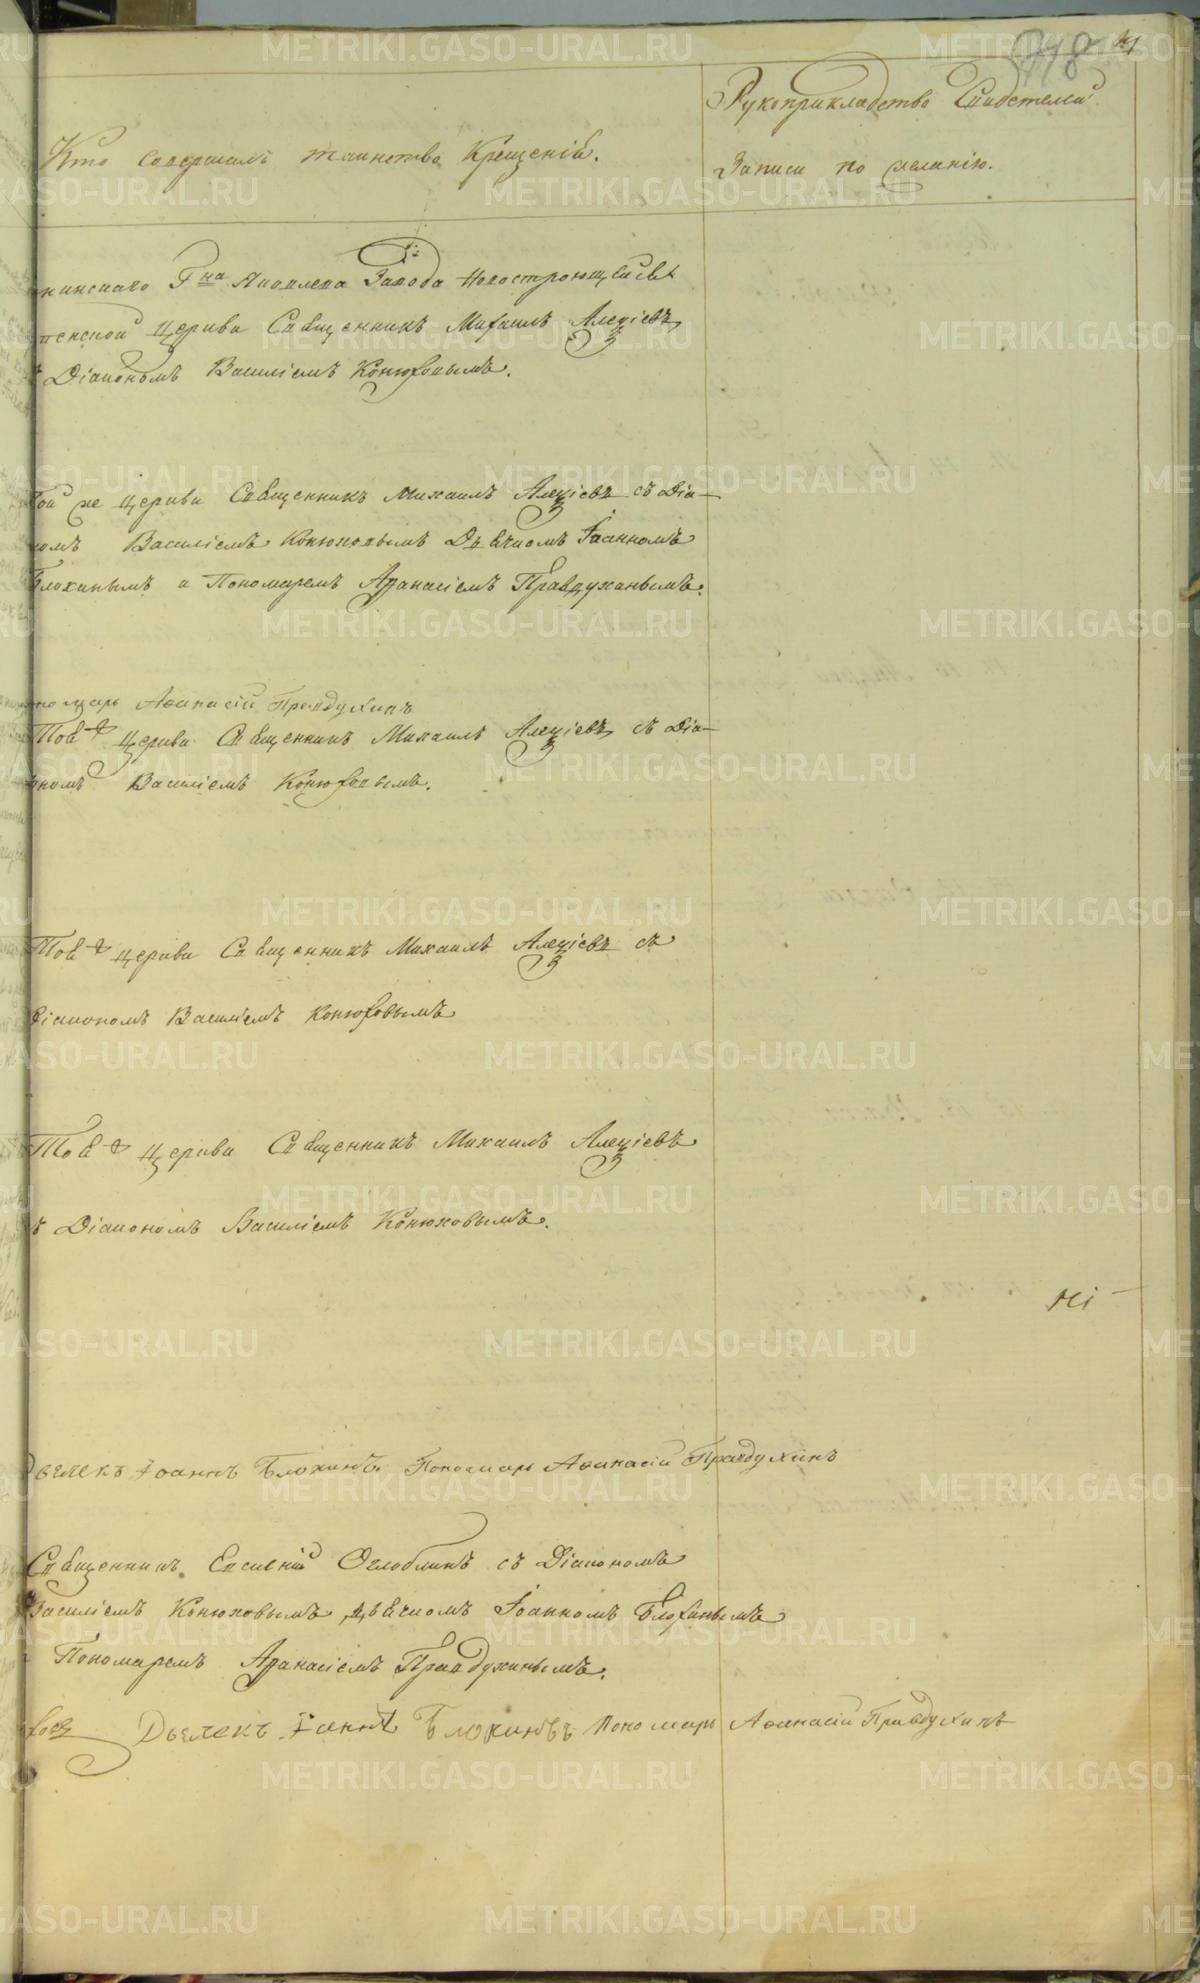 718
Рукоприкладство Свидетелей
Кто совершалъ таинство Крещенія.
Записи по желанію.
Гна Яковлева Завода Новостроющейся
Церкви Священникъ Михаилъ Алексіевъ
Діакономъ Василіемъ Конюховымъ.
Той же Церкви Священникъ Михаилъ Алексіевъ съ Діа-
номъ Василіемъ Конюховымъ Дьячкомъ Іоанномъ
Блохинымъ и Пономаремъ Афанасіемъ Правдухинымъ.
пономарь Афанасій Правдухинъ
Тоя Церкви Священникъ Михаилъ Алексіевъ съ Діа-
кономъ Василіемъ Конюховымъ.
Тоя Церкви Священникъ Михаилъ Алексіевъ съ
Діакономъ Василіемъ Конюховымъ
Тоя Церкви Священникъ Михаилъ Алексіевъ
ъ Діакономъ Василіемъ Конюховымъ.
Дьячекъ Іоаннъ Блохинъ Пономарь Афанасій Правдухинъ
Священникъ Евсевій Оглоблинъ съ Діакономъ
Василіемъ Конюховымъ, дьячкомъ Іоанномъ Блохинымъ
Пономаремъ Афанасіемъ Правдухинымъ.
Дьячекъ Іоаннъ Блохинъ Пономарь Афанасій Правдухинъ
METRIKI.GASO-URAL.RU